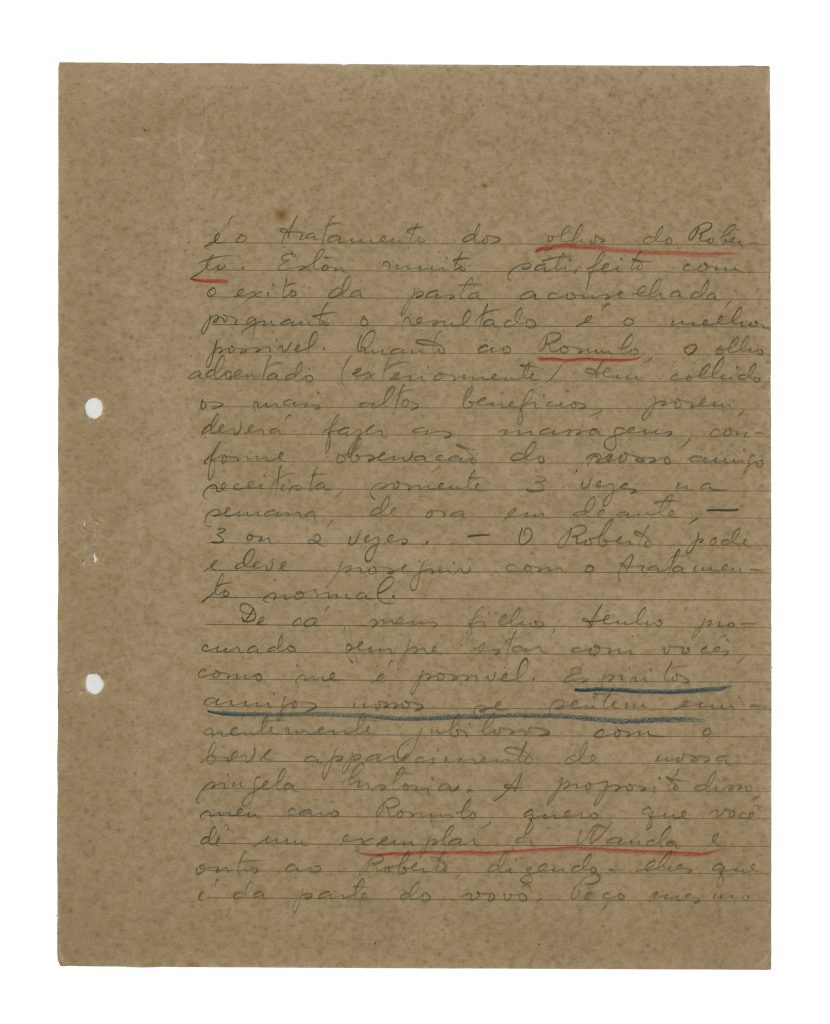 é o tratamento dos olhos do Rober-
to. Estou muito satisfeito com
o exito da pasta aconselhada,
porquanto o resultado é o melhor
possivel. Quanto ao Romulo, o olho
adoentado (exteriormente) tem colhido
os mais altos beneficios, porem,
deverá fazer as massagens, con-
forme observação do nosso amigo
receitista, somente 3 vezes na
semana, de ora em deante, —
3 ou 2 vezes. — O Roberto pode
e deve proseguir com o tratamen-
to normal.
De cá, meus filhos, tenho pro-
curado sempre estar com vocês,
como me é possivel. Espiritos
amigos nossos se sentem emi-
nentemente jubilosos com o
breve apparecimento de nossa
singela historia. A proposito disso,
meu caro Romulo, quero que você
dê um exemplar á Wanda e
outro ao Roberto, dizendo-lhes que
é da parte do vovô. Peço mesmo